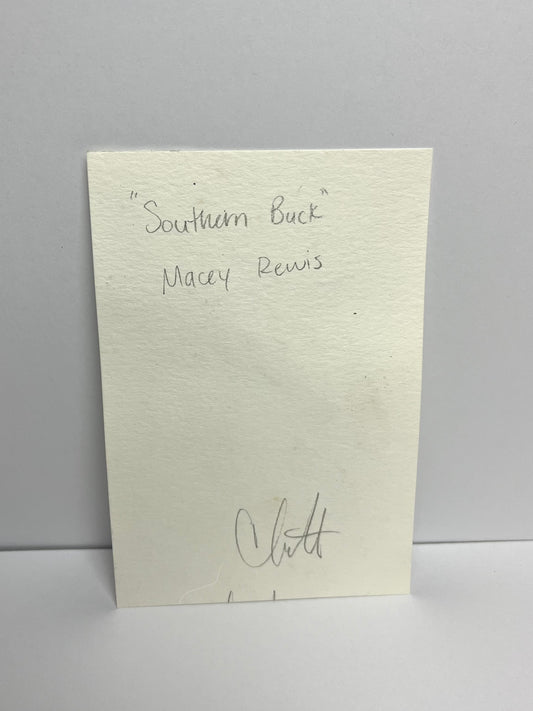 "Southern Buck"
Macey Rewis